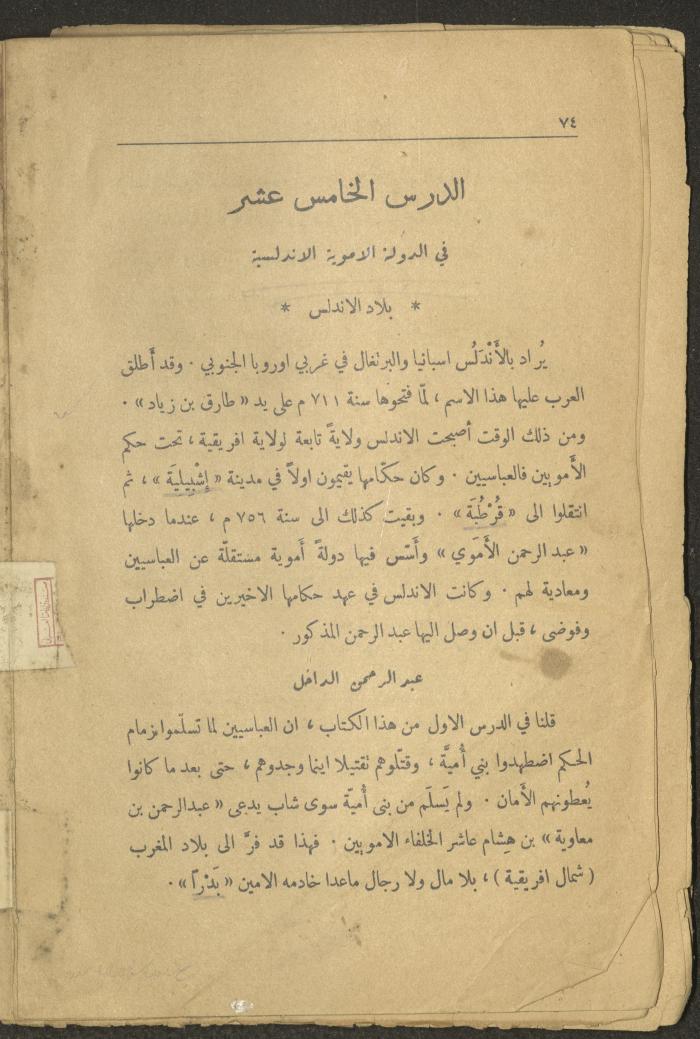 ٧٤
الدرس الخامس عشر
في الدولة الاموية الاندلسية
* بلاد الاندلس *
يُراد بالأَنْدَلُس اسبانيا والبرتغال في غربي اوروبا الجنوبي . وقد أَطلق
العرب عليها هذا الاسم ، لمّا فتحوها سنة ٧١١ م على يد « طارق بن زياد » .
ومن ذلك الوقت أصبحت الاندلس ولايةً تابعة لولاية افريقية ، تحت حكم
الأَمويين فالعباسيين . وكان حكّامها يقيمون اولاً في مدينة « إِشْبِيلِيَة » ، ثم
انتقلوا الى « قُرْطُبَة » . وبقيت كذلك الى سنة ٧٥٦ م ، عندما دخلها
« عبد الرحمن الأَمَوي » وأَسّس فيها دولةً أَموية مستقلّة عن العباسيين
ومعادية لهم . وكانت الاندلس في عهد حكامها الاخيرين في اضطراب
وفوضى ، قبل ان وصل اليها عبد الرحمن المذكور .
عبد الرحمن الداخل
قلنا في الدرس الاول من هذا الكتاب ، ان العباسيين لما تسلّموا بزمام
الحكم اضطهدوا بني أُميَّة ، وقتّلوهم تقتيلا اينما وجدوهم ، حتى بعد ما كانوا
يُعطونهم الأَمان . ولم يَسلَم من بني أُميّة سوى شاب يدعى « عبدالرحمن بن
معاوية » بن هِشام عاشر الخلفاء الامويين . فهذا قد فرَّ الى بلاد المغرب
( شمال افريقية ) ، بلا مال ولا رجال ماعدا خادمه الامين « بَدْراً » .